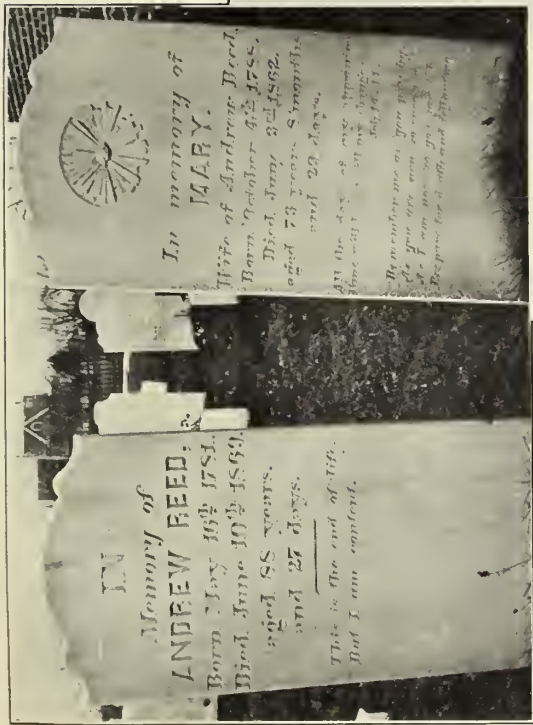 IN
Memory of
ANDREW REED,
Born May 16th 1781.
Died June 10th 1869.
aged 88 Years.
and 27 days.
This is the end of life.
But I am content.
In memory of
MARY.
Wife of Andrew Reed,
Born October 4th 1788.
Died June 3rd 1862.
aged 73 years 8 months
and 29 days.
All the days of my appointed
time will I
Remember me as you pass by.
As you are now so once
As I am now so you
Prepare for death and follow